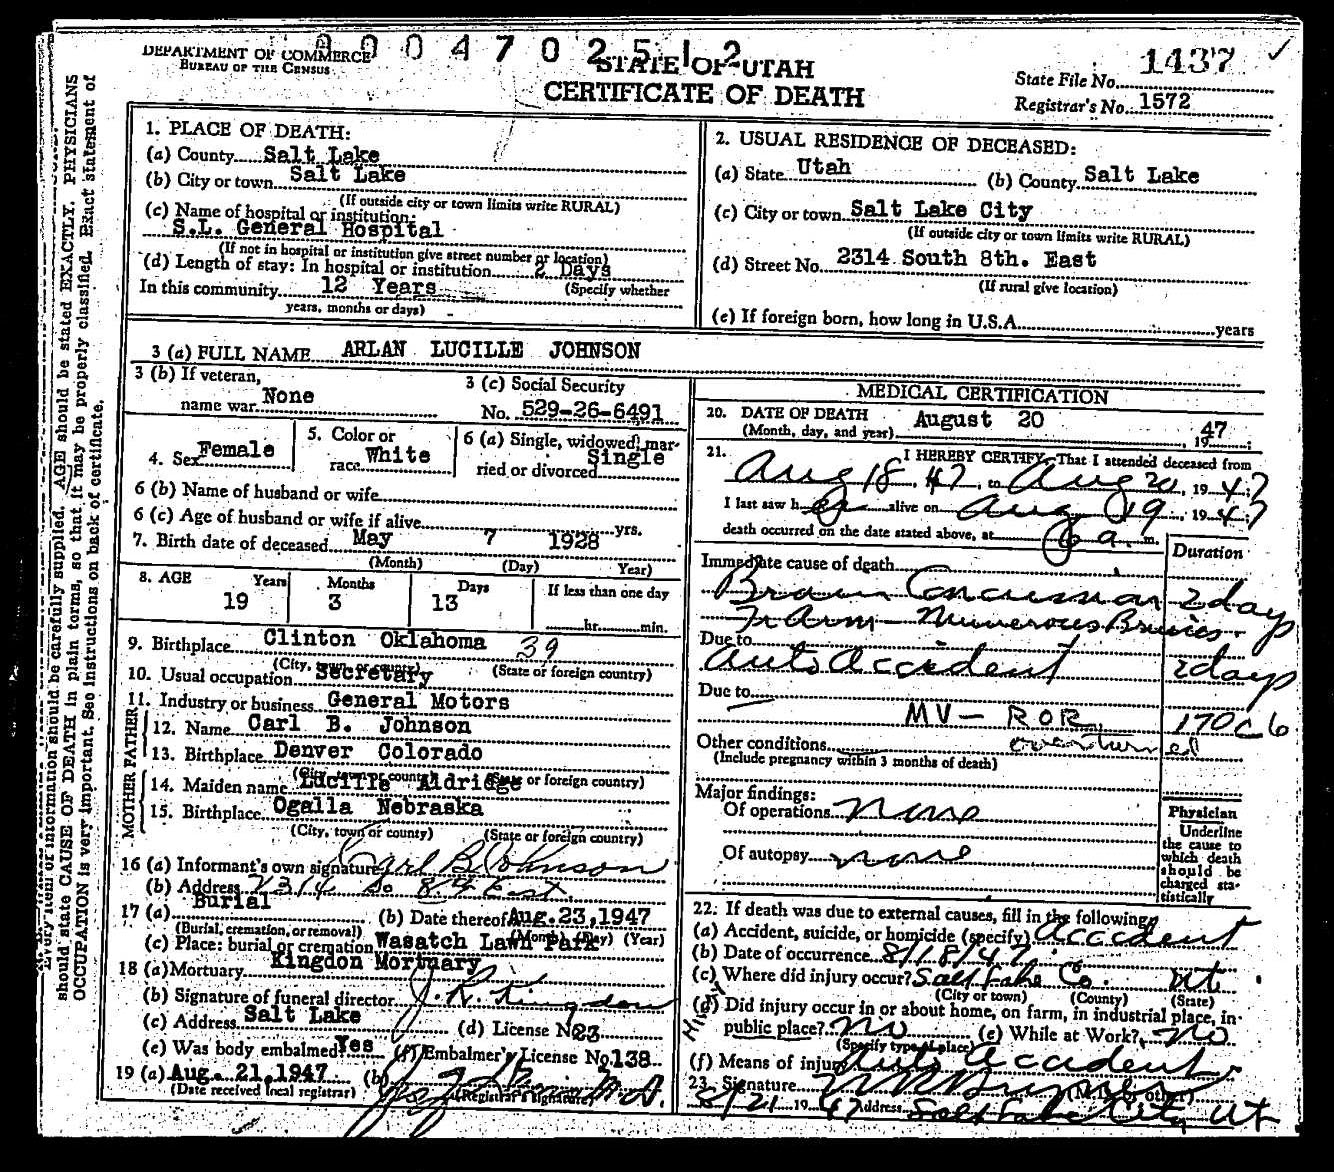 0 0 0 4 7 0 2 5 1 2
DEPARTMENT OF COMMERCE
BUREAU OF THE CENSUS
STATE OF UTAH
CERTIFICATE OF DEATH
State File No. 1437 ✓
Registrar's No. 1572
Every item of information should be carefully supplied. AGE should be stated EXACTLY. PHYSICIANS
should state CAUSE OF DEATH in plain terms, so that it may be properly classified. Exact statement of
OCCUPATION is very important. See instructions on back of certificate.
1. PLACE OF DEATH:
(a) County Salt Lake
(b) City or town Salt Lake
(If outside city or town limits write RURAL)
(c) Name of hospital or institution:
S.L. General Hospital
(If not in hospital or institution give street number or location)
(d) Length of stay: In hospital or institution 2 Days
In this community 12 Years (Specify whether
years, months or days)
2. USUAL RESIDENCE OF DECEASED:
(a) State Utah (b) County Salt Lake
(c) City or town Salt Lake City
(If outside city or town limits write RURAL)
(d) Street No. 2314 South 8th. East
(If rural give location)
(e) If foreign born, how long in U.S.A. years
3 (a) FULL NAME ARLAN LUCILLE JOHNSON
3 (b) If veteran,
name war None
3 (c) Social Security
No. 529-26-6491
4. Sex Female
5. Color or
race White
6 (a) Single, widowed, mar-
ried or divorced Single
6 (b) Name of husband or wife
6 (c) Age of husband or wife if alive yrs.
7. Birth date of deceased May 7 1928
(Month) (Day) Year)
8. AGE Years Months Days If less than one day
19 3 13 hr. min.
9. Birthplace Clinton Oklahoma 39
(City, town, or county) (State or foreign country)
10. Usual occupation Secretary
11. Industry or business General Motors
FATHER
12. Name Carl B. Johnson
13. Birthplace Denver Colorado
(City, town or county) (State or foreign country)
MOTHER
14. Maiden name Lucille Aldridge
15. Birthplace Ogalla Nebraska
(City, town or county) (State or foreign country)
16 (a) Informant's own signature Carl B. Johnson
(b) Address 2314 So 8th East
17 (a) Burial (b) Date thereof Aug.23,1947
(Burial, cremation, or removal) (Month) (Day) (Year)
(c) Place: burial or cremation Wasatch Lawn Park
18 (a) Mortuary Kingdon Mortuary
(b) Signature of funeral director J. R. Kingdon
(c) Address Salt Lake (d) License No. 23
(e) Was body embalmed Yes (f) Embalmer's License No. 138
19 (a) Aug. 21,1947 (b)
(Date received local registrar) (Registrar's signature)
MEDICAL CERTIFICATION
20. DATE OF DEATH August 20
(Month, day, and year) , 19 47;
21. I HEREBY CERTIFY, That I attended deceased from
Aug 18, 47, to Aug 20, 19 47
I last saw h er alive on Aug 19, 19 47
death occurred on the date stated above, at 6 a. m.
Immediate cause of death Duration
Brain Concussion 2 days
Fr Arm - Numerous Bruises
Due to
Auto Accident 2 days
Due to
MV - ROR 170C6
overturned
Other conditions
(Include pregnancy within 3 months of death)
Major findings:
Of operations none
Of autopsy none
Physician
Underline
the cause to
which death
should be
charged sta-
tistically
22. If death was due to external causes, fill in the following:
(a) Accident, suicide, or homicide (specify) Accident
(b) Date of occurrence 8/18/47
(c) Where did injury occur? Salt Lake Co. Ut.
(City or town) (County) (State)
(d) Did injury occur in or about home, on farm, in industrial place, in
public place? No (e) While at Work? No
(Specify type of place)
HiWY
(f) Means of injury Auto Accident
23. Signature (M.D. or other)
8/21 19 47 Address Salt Lake City, Ut